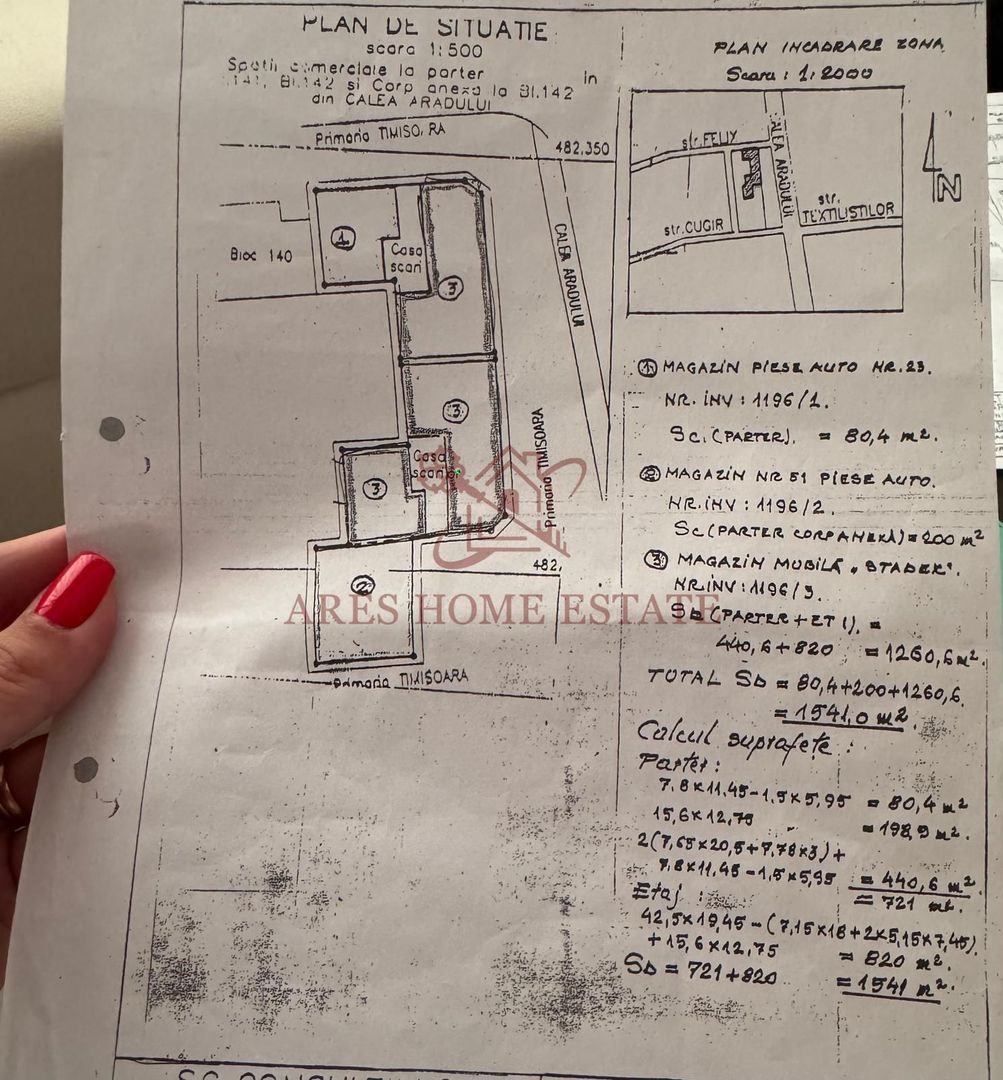 PLAN DE SITUATIE
scara 1:500
Spatii comerciale la parter in
141, Bl.142 si Corp anexa la Bl.142
din CALEA ARADULUI
Primaria TIMISOARA
482.350
CALEA ARADULUI
Bloc 140
1
Casa
scari
3
3
Casa
scari
3
Primaria TIMISOARA
482.
2
Primaria TIMISOARA
ARES HOME ESTATE
PLAN INCADRARE ZONA
Scara : 1:2000
str.FELIX
CALEA ARADULUI
str.
TEXTILISTILOR
str.CUGIR
N
1 MAGAZIN PIESE AUTO NR.23.
NR. INV : 1196/1.
Sc.(PARTER). = 80,4 m².
2 MAGAZIN NR 51 PIESE AUTO.
NR.INV : 1196/2.
Sc(PARTER CORP ANEXĂ)=200 m²
3 MAGAZIN MOBILĂ "STADEK".
NR.INV : 1196/3.
Sd (PARTER + ET 1). =
440,6 + 820 = 1260,6 m².
TOTAL Sd = 80,4+200+1260,6.
= 1541,0 m².
Calcul suprafețe :
Parter :
7,8×11,45-1,5×5,95 = 80,4 m²
15,6×12,75 = 198,9 m².
2(7,65×20,5+7,78×3)+
7,8×11,45-1,5×5,95 = 440,6 m²
= 721 m².
Etaj :
42,5×19,45-(7,15×18+2×5,15×7,45)
+15,6×12,75 = 820 m².
Sd = 721+820 = 1541 m².